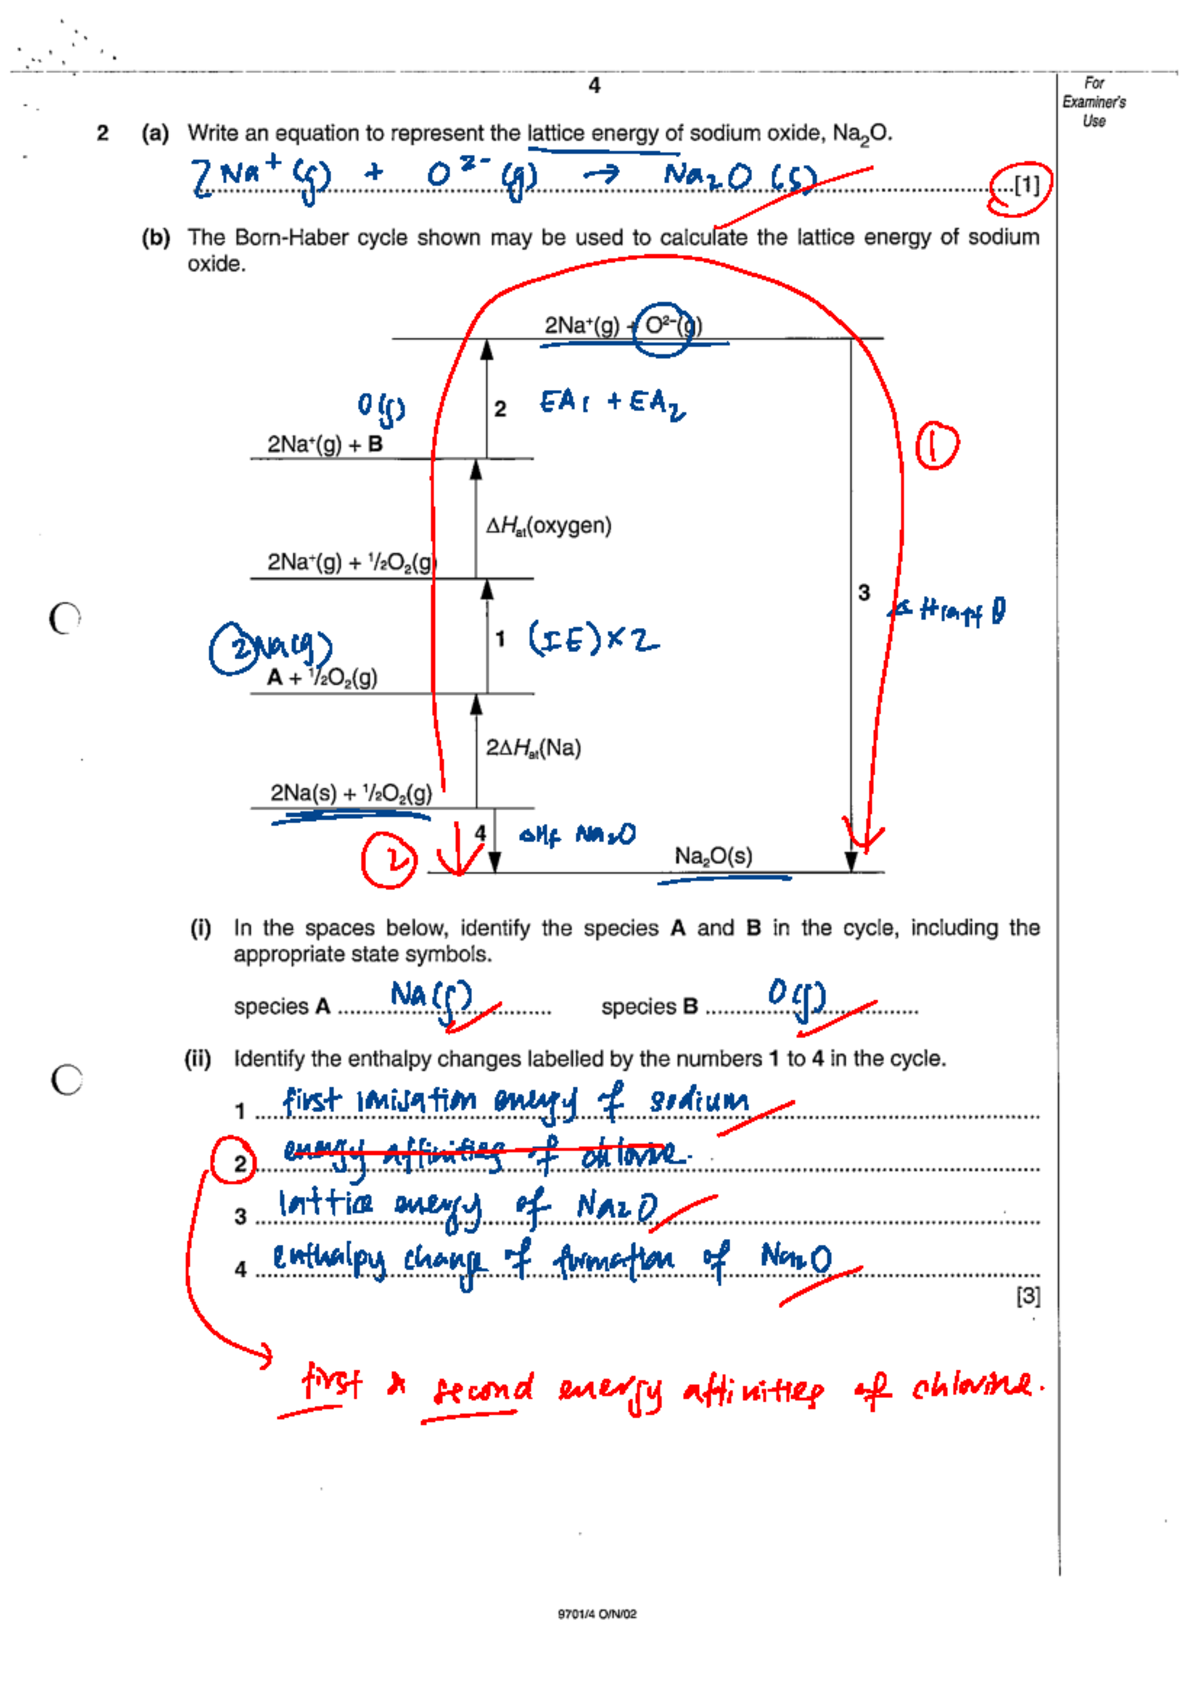 4
For
Examiner's
Use
2 (a) Write an equation to represent the lattice energy of sodium oxide, Na₂O.
2Na⁺(g) + O²⁻(g) → Na₂O(s) [1]
(b) The Born-Haber cycle shown may be used to calculate the lattice energy of sodium
oxide.
2Na⁺(g) + O²⁻(g)
O(g)
2 EA₁ + EA₂
2Na⁺(g) + B
1
ΔHat(oxygen)
2Na⁺(g) + ½O₂(g)
3 ΔHlatt θ
2Na(g)
1 (IE)×2
A + ½O₂(g)
2ΔHat(Na)
2Na(s) + ½O₂(g)
4 ΔHf Na₂O
2
Na₂O(s)
(i) In the spaces below, identify the species A and B in the cycle, including the
appropriate state symbols.
species A Na(g) species B O(g)
(ii) Identify the enthalpy changes labelled by the numbers 1 to 4 in the cycle.
1 first ionisation energy of sodium
2 energy affinities of chlorine.
3 lattice energy of Na₂O
4 enthalpy change of formation of Na₂O
[3]
first & second energy affinities of chlorine.
9701/4 O/N/02